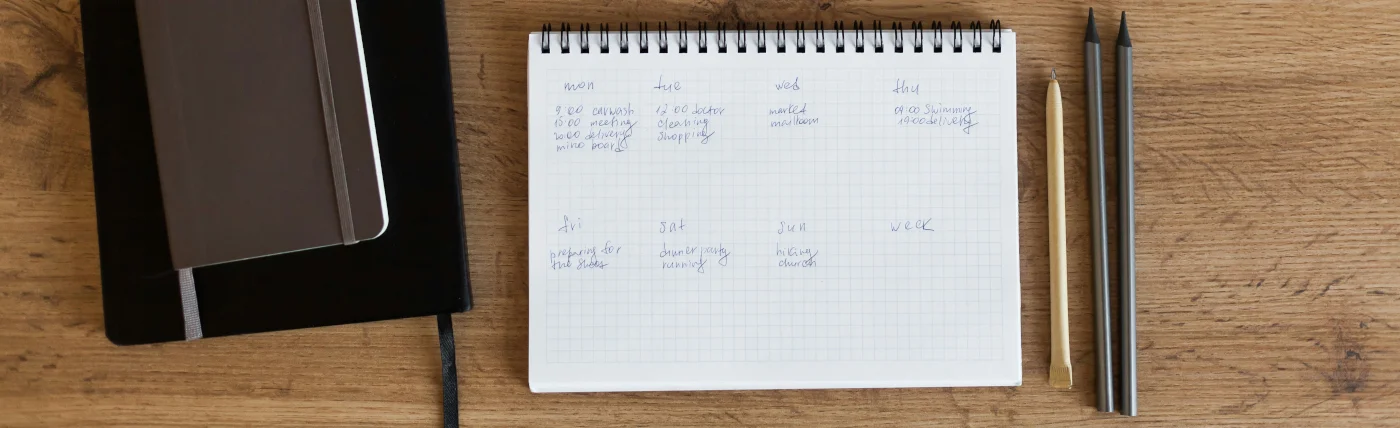 mon
9:00 carwash
15:00 meeting
20:00 delivery
mino board
tue
12:00 doctor
cleaning
shopping
wed
market
mailroom
thu
09:00 Swimming
19:00 delivery
fri
preparing for
the
sat
dinner party
running
sun
hiking
church
week